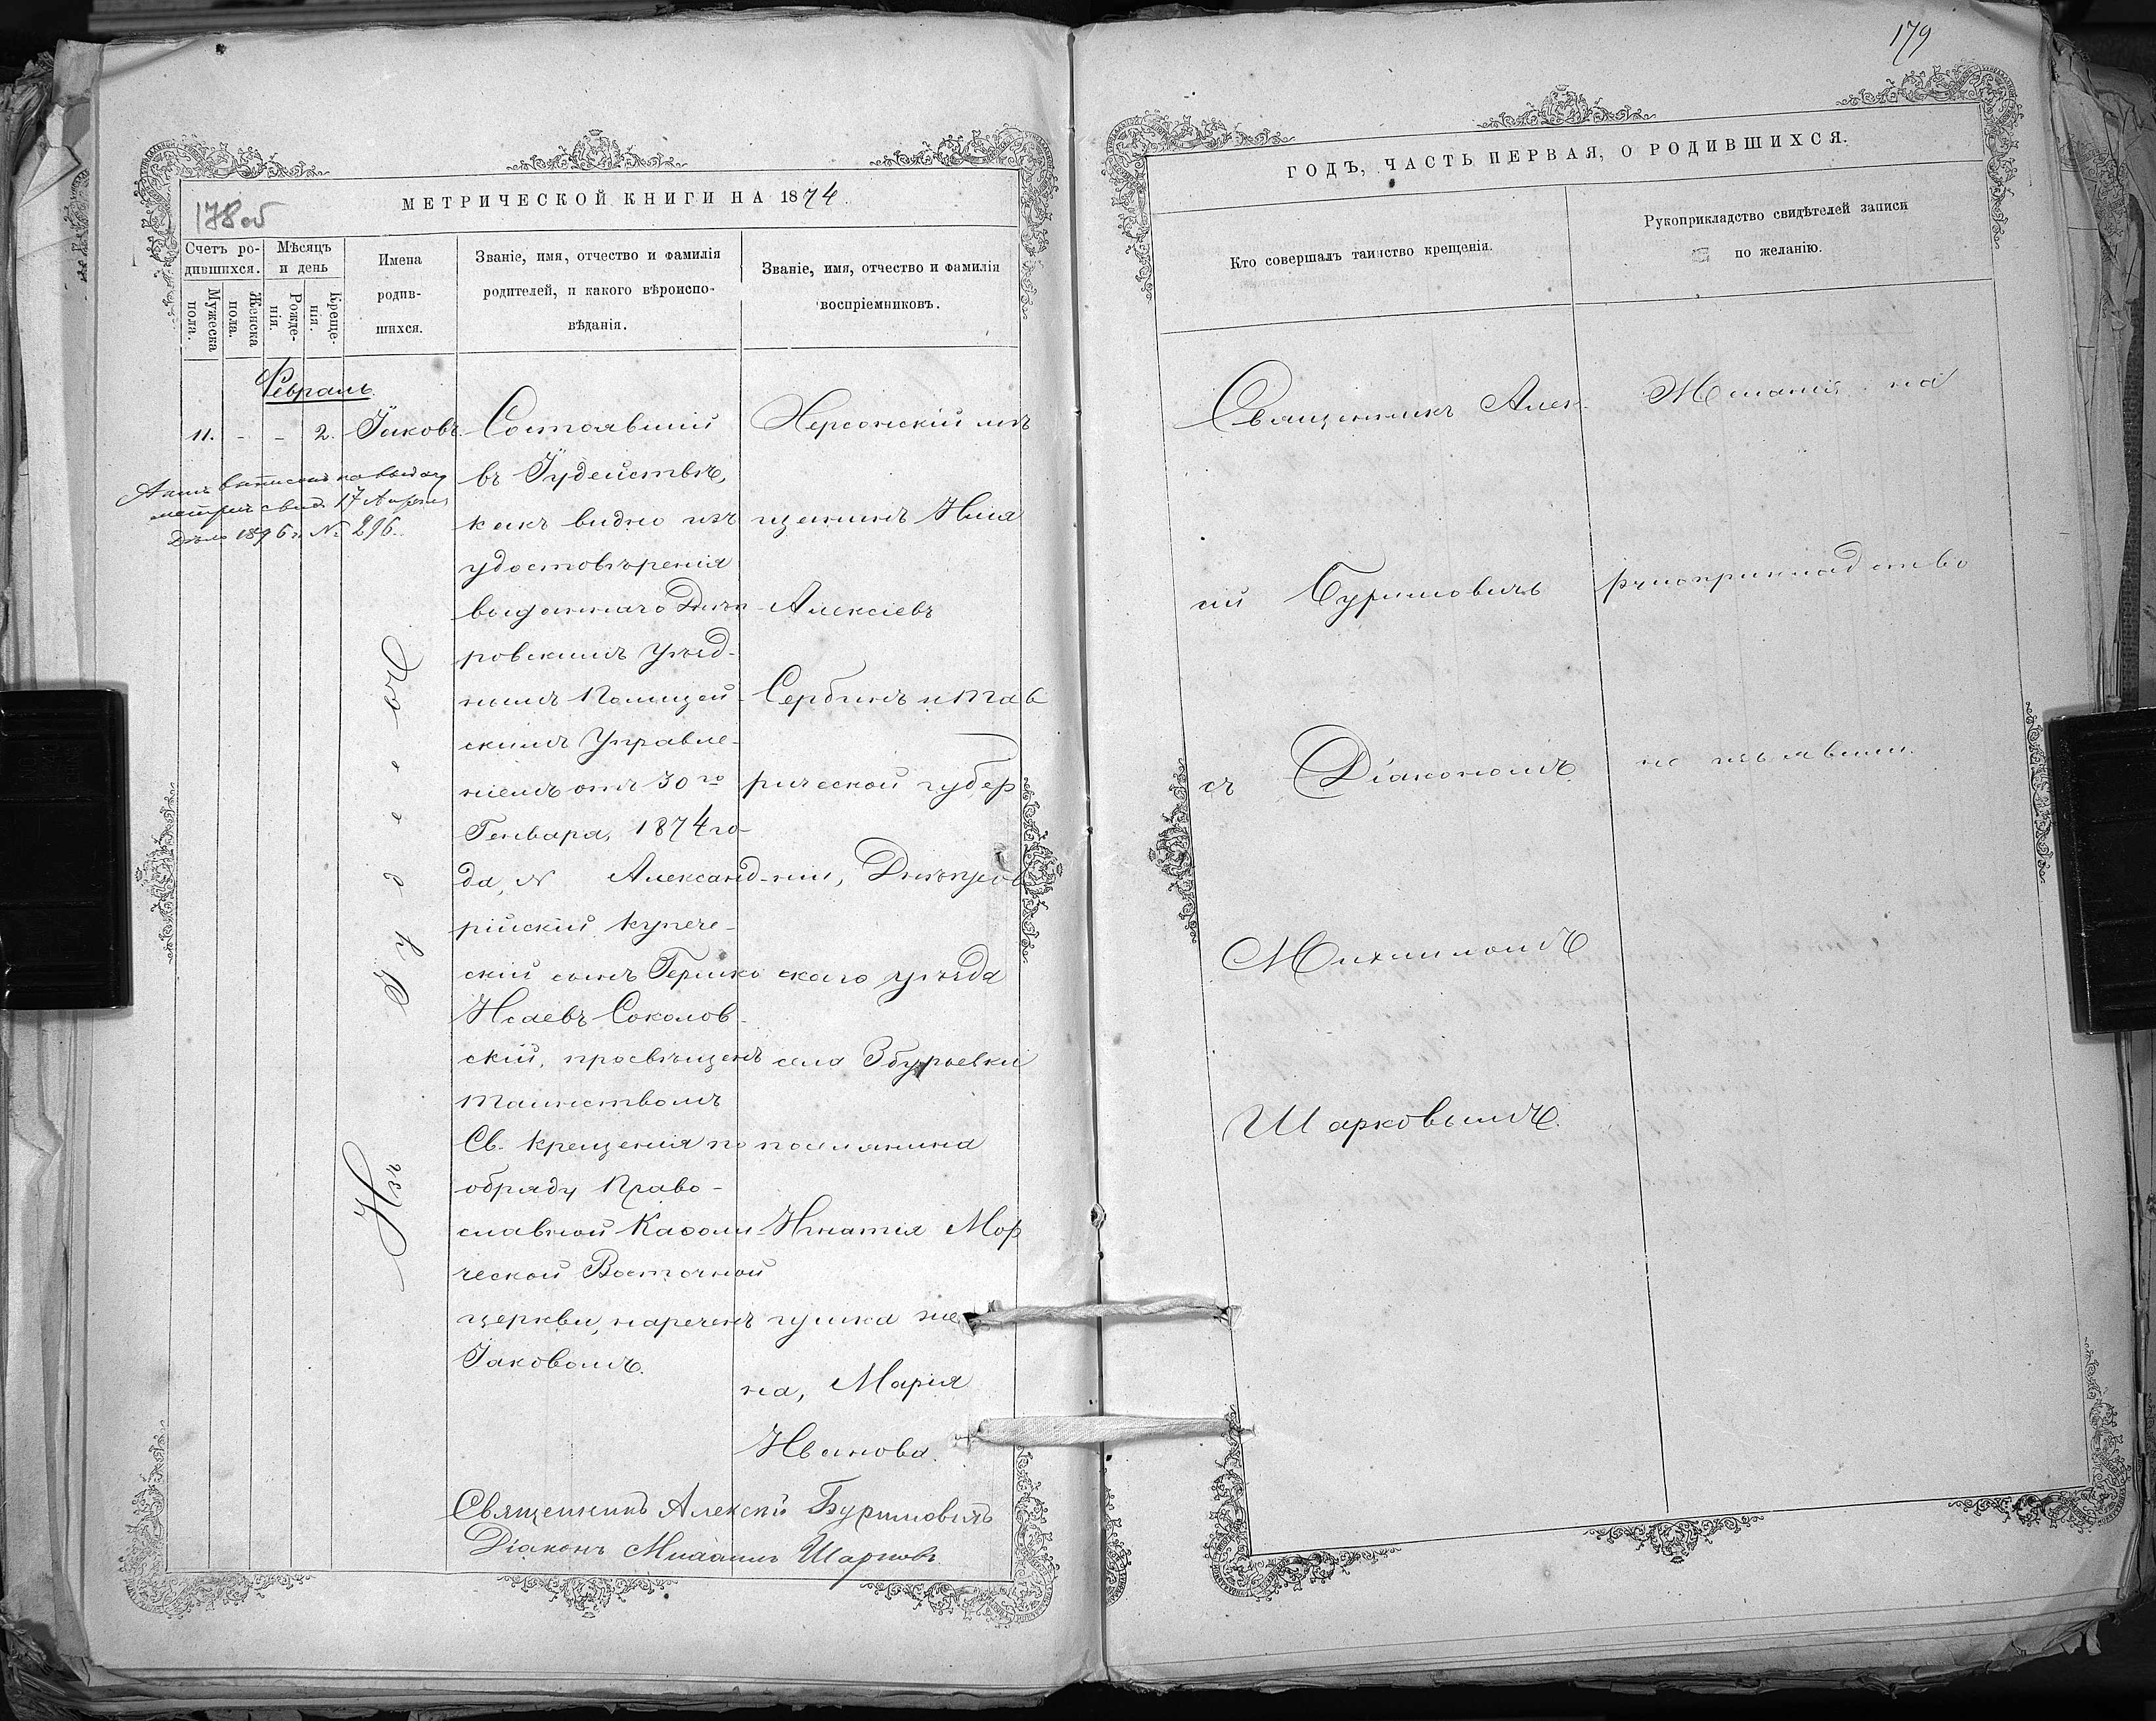 179
МЕТРИЧЕСКОЙ КНИГИ НА 1874.
178 об
Счетъ ро-
дившихся.
Мужеска
пола.
Женска
пола.
Мѣсяцъ
и день
Рожде-
нія.
Креще-
нія.
Имена
родив-
шихся.
Званіе, имя, отчество и фамилія
родителей, и какого вѣроиспо-
вѣданія.
Званіе, имя, отчество и фамилія
воспріемниковъ.
Февраль.
11. - - 2. Іаковъ.
Актъ выписанъ на выдачу
метрич свид. 17 Апрѣля
Дѣло 1896 г. № 296.
Изъ Іудеевъ
Состоявшій
въ Іудействѣ,
какъ видно изъ
удостовѣренія
выданнаго Днѣп-
ровскимъ Уѣзд-
нымъ Полицей-
скимъ Управле-
ніемъ отъ 30го
Генваря, 1874 го-
да, № Александ-
рійскій купече-
скій сынъ Гершко
Исаевъ Соколов-
скій, просвѣщенъ
таинствомъ
Св. Крещенія по
обряду Право-
славной Каѳоли-
ческой Восточной
церкви, нареченъ
Іаковомъ.
Херсонскій мѣ
щанинъ Илія
Алексіевъ
Сербинъ и Тав
рической губер
ніи, Днѣпров
скаго уѣзда
села Збурьевки
поселянина
Игнатія Мор
гушка же
на, Марія
Иванова.
Священникъ Алексій Буримовичъ
Діаконъ Михаилъ Шарковъ
ГОДЪ, ЧАСТЬ ПЕРВАЯ, О РОДИВШИХСЯ.
Кто совершалъ таинство крещенія.
Рукоприкладство свидѣтелей записи
по желанію.
Священникъ Алек-
сій Буримовичъ
съ Діакономъ
Михаиломъ
Шарковымъ.
Желанія на
рукоприкладство
не изъявили.